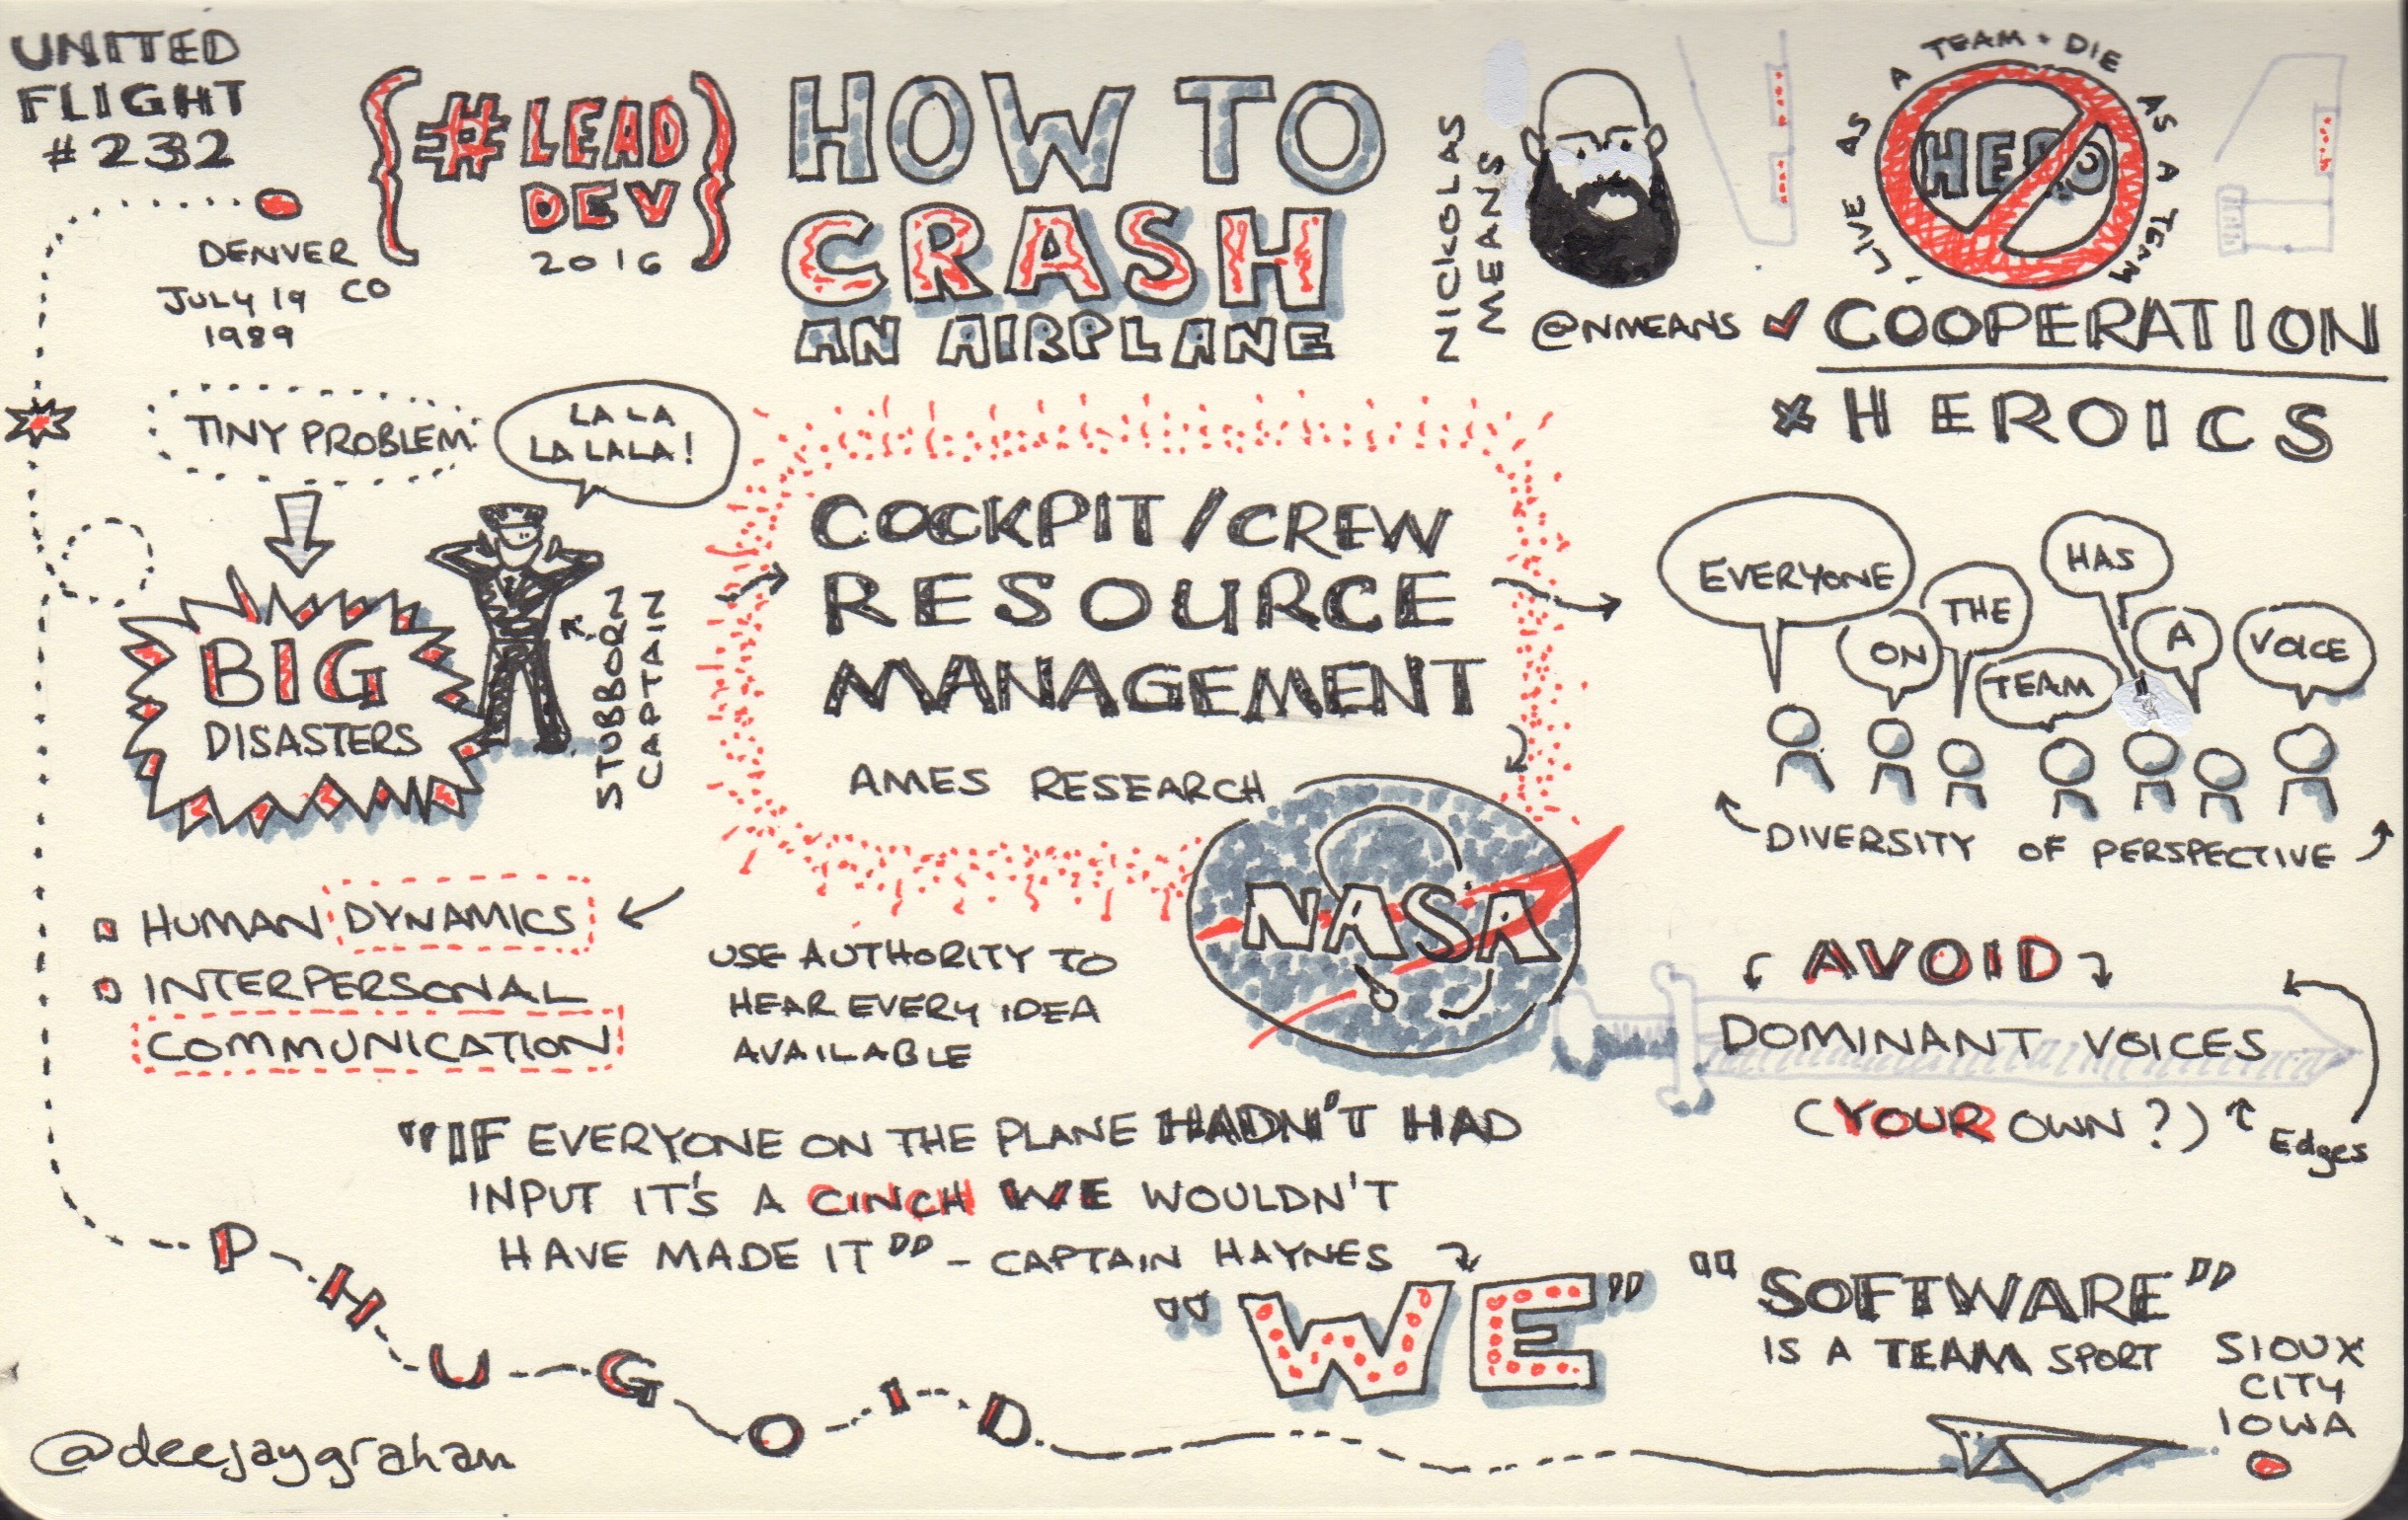 UNITED
FLIGHT
#232
DENVER
CO
JULY 19
1989
{#LEAD
DEV}
2016
HOW TO
CRASH
AN AIRPLANE
NICKOLAS
MEANS
@NMEANS
LIVE AS A TEAM • DIE AS A TEAM
HERO
✓ COOPERATION
× HEROICS
TINY PROBLEM
LA LA
LA LALA!
BIG
DISASTERS
STUBBORN
CAPTAIN
COCKPIT/CREW
RESOURCE
MANAGEMENT
AMES RESEARCH
NASA
EVERYONE
ON
THE
TEAM
HAS
A
VOICE
DIVERSITY OF PERSPECTIVE
HUMAN DYNAMICS
INTERPERSONAL
COMMUNICATION
USE AUTHORITY TO
HEAR EVERY IDEA
AVAILABLE
AVOID
DOMINANT VOICES
(YOUR OWN?)
Edges
"IF EVERYONE ON THE PLANE HADN'T HAD
INPUT IT'S A CINCH WE WOULDN'T
HAVE MADE IT" - CAPTAIN HAYNES
"WE"
"SOFTWARE"
IS A TEAM SPORT
SIOUX
CITY
IOWA
PHUGOID
@deejaygraham